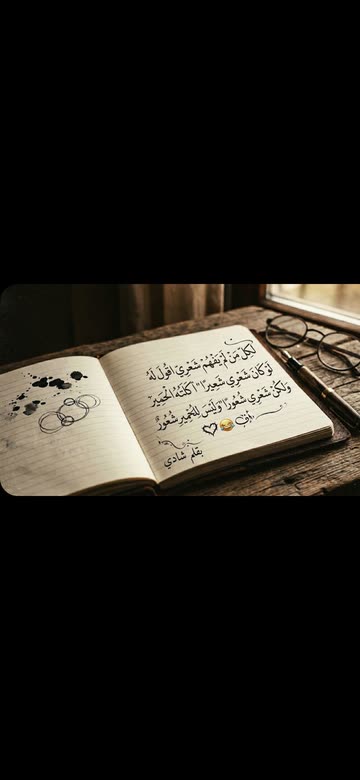 لكل من لم يفهم شعري اقول له
لو كان شعري شعيراً أكلته الحمير
ولكن شعري شعوراً وليس للحمير شعورٌ
🤍😂
بقلم شادي